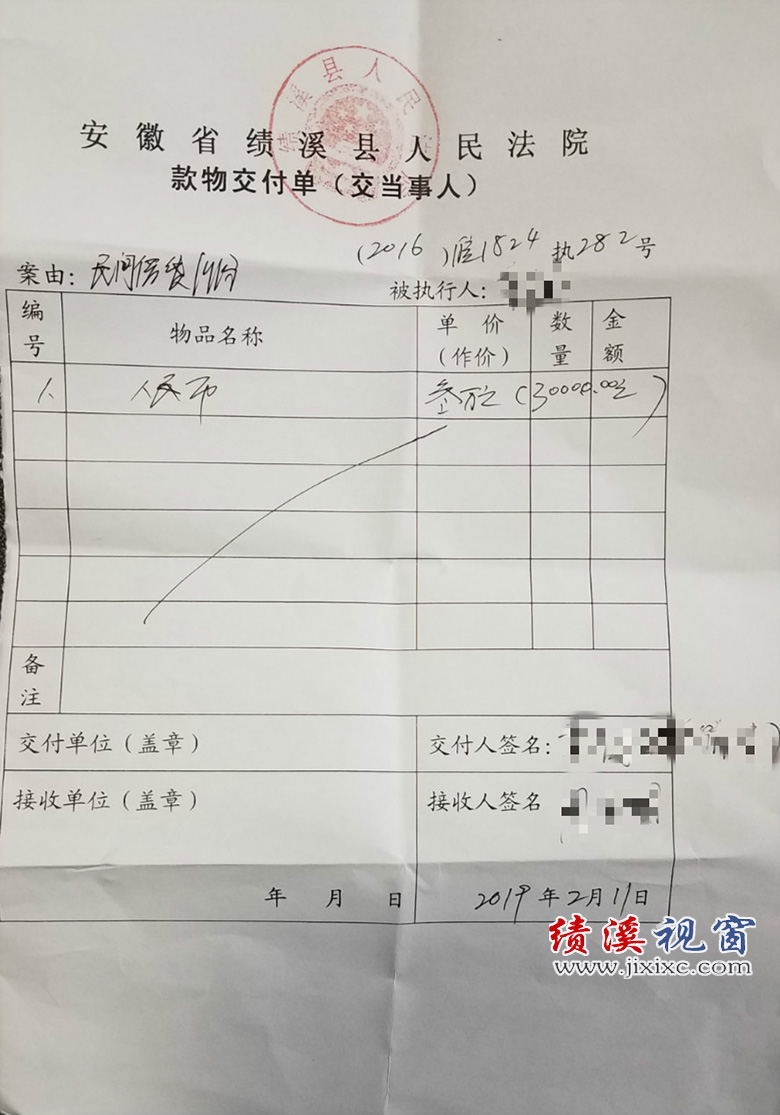 绩溪县人民
安徽省绩溪县人民法院
款物交付单(交当事人)
(2016)皖1824执282号
案由:民间借贷纠纷
被执行人:
编号 物品名称 单价(作价) 数量 金额
1. 人民币 叁万元(30000.00元)
备注
交付单位(盖章) 交付人签名:
接收单位(盖章) 接收人签名
年 月 日 2019年2月11日
绩溪视窗
www.jixixc.com